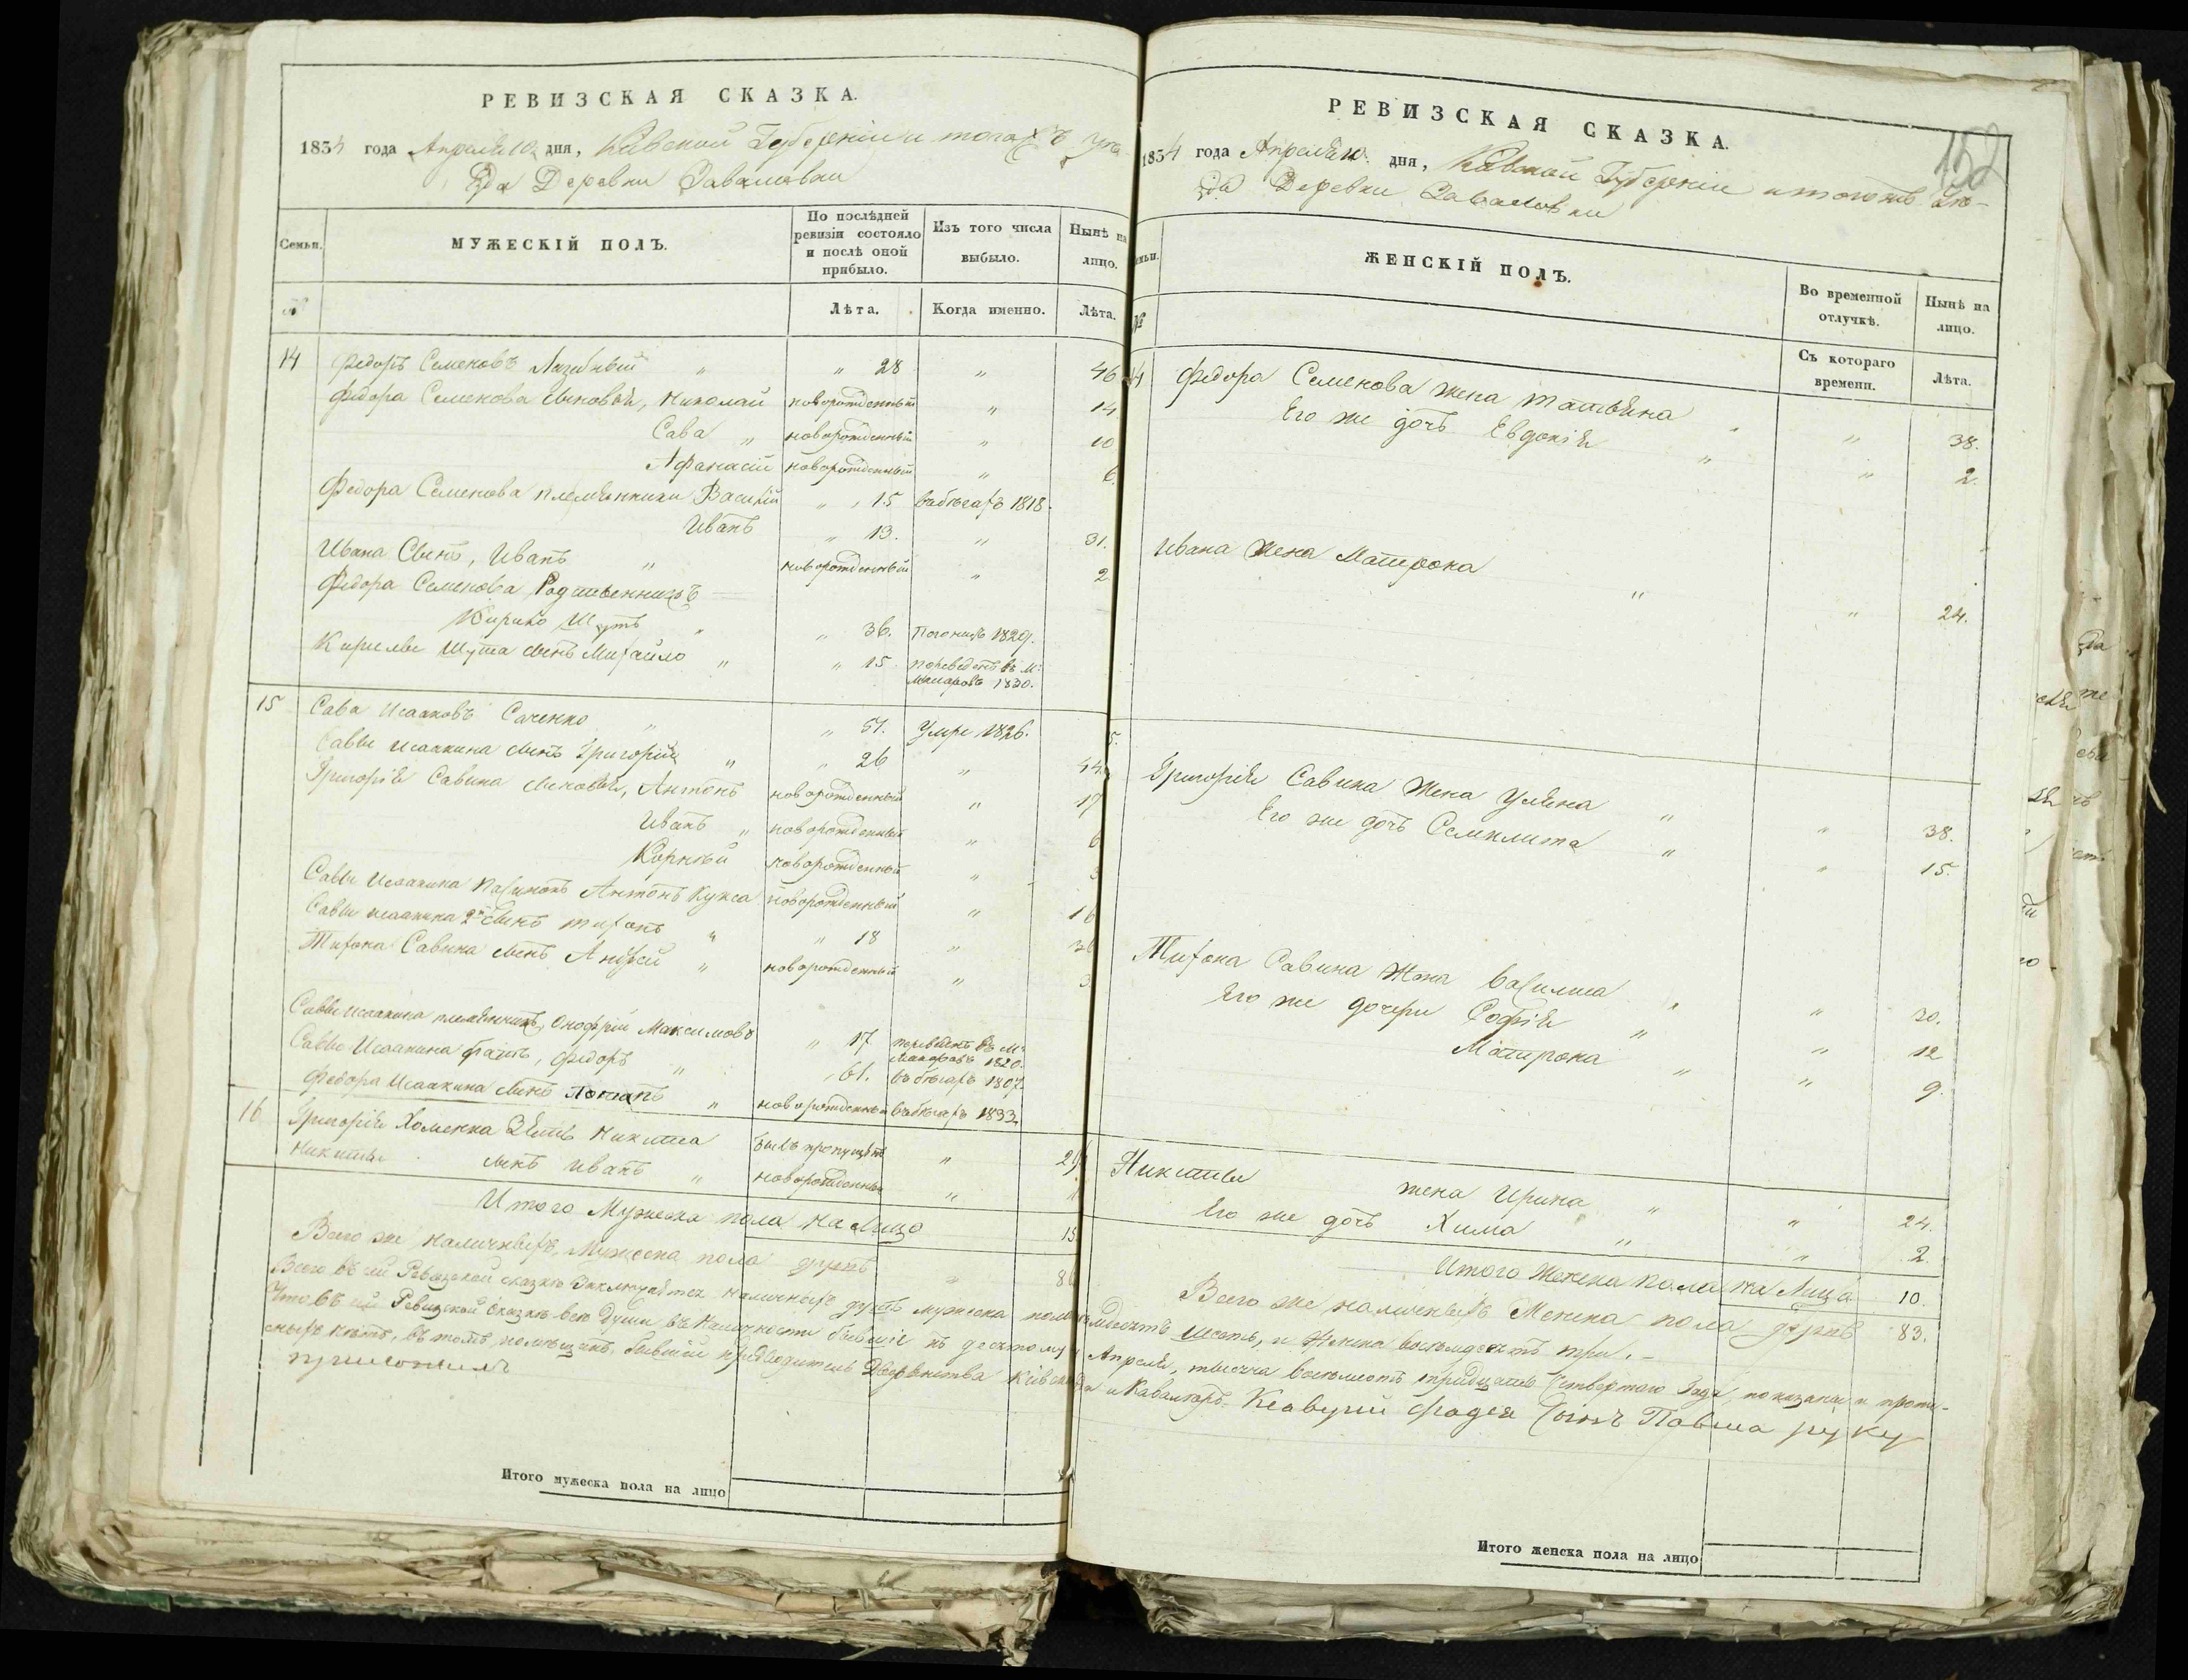 РЕВИЗСКАЯ СКАЗКА.
1834 года Апреля 10 дня, Кіевской Губерніи и тогожъ уѣ-
зда Деревни Завалловки
Семьи.
МУЖЕСКІЙ ПОЛЪ.
По послѣдней ревизіи состояло и послѣ оной прибыло.
Изъ того числа выбыло.
Нынѣ на лицо.
№
Лѣта.
Когда именно.
Лѣта.
14 Федоръ Семеновъ " " 28 " 46
Федора Семенова сыновья, Николай новорожденный " 14
Сава " новорожденный " 10
Афанасій новорожденный " 6
Федора Семенова племянники Василій " 15 въ бѣгахъ 1818.
Иванъ " 13. " 31.
Ивана Сынъ, Иванъ " новорожденный " 2
Федора Семенова Родственникъ
Кирило Шутъ " " 36. 1829.
Кирилы Шута сынъ Михайло " " 15 переведенъ въ М:
Макаровъ 1830.
15 Сава Исааковъ Саченко " " 51. Умре 1826.
Саввы Исаакина сынъ Григорій " " 26 " 44
Григорія Савина сыновья, Антонъ новорожденный " 17
Иванъ " новорожденный " 6
Корнѣй новорожденный " 3
Саввы Исаакина пасынокъ Антонъ Кукса новорожденный " 16
Саввы Исаакина 2й сынъ Тихонъ " " 18 " 36
Тихона Савина сынъ Андрей " новорожденный " 3
Саввы Исаакина племянникъ, Онофрій Максимовъ " 17 переведенъ въ М:
Макаровъ 1820.
Саввы Исаакина братъ, Федоръ " " 61. въ бѣгахъ 1807.
Федора Исаакина сынъ Потапъ " новорожденный въ бѣгахъ 1833
16 Григорія Хоменка Зять Никита былъ пропущенъ " 29
Никиты сынъ Иванъ " новорожденный " 1
Итого Мужеска пола на Лицо 15
Всего же наличныхъ, Мужеска пола душъ " 86
Всего въ сей Ревизской сказкѣ Заключается наличныхъ душъ мужеска пола
Что въ сей Ревизской сказкѣ всѣ Души въ Наличности бывшіе къ десятому
въ томъ, помѣщикъ, бывшій предводитель Дворянства Кіевска
приложилъ
Итого мужеска пола на лицо
РЕВИЗСКАЯ СКАЗКА.
152
1834 года Апреля 10 дня, Кіевской Губерніи и тогожъ Уѣ-
зда Деревни Завалловки
Семьи.
ЖЕНСКІЙ ПОЛЪ.
Во временной отлучкѣ.
Нынѣ на лицо.
№
Съ котораго времени.
Лѣта.
14 Федора Семенова жена Татьяна " " 38.
Его же дочь Евдокія " " 2.
Ивана жена Матрона " " 24.
15. Григорія Савина Жена Уляна " " 38.
Его же дочь Семклита " " 15.
Тихона Савина Жена Василиса " " 30.
Его же дочери Софія " " 12
Матрона " " 9.
Никиты жена Ирина " " 24.
Его же дочь Хима " " 2.
Итого Женска пола на Лицо 10.
Всего же наличныхъ Женска пола душъ 83.
восемдесятъ шесть, и Женска восемдесятъ три.
Апреля, тысяча восемьсотъ тридцать Четвертаго Года, показаны и
и Кавалеръ Ксаверій Фадея Сынъ Павша руку
Итого женска пола на лицо